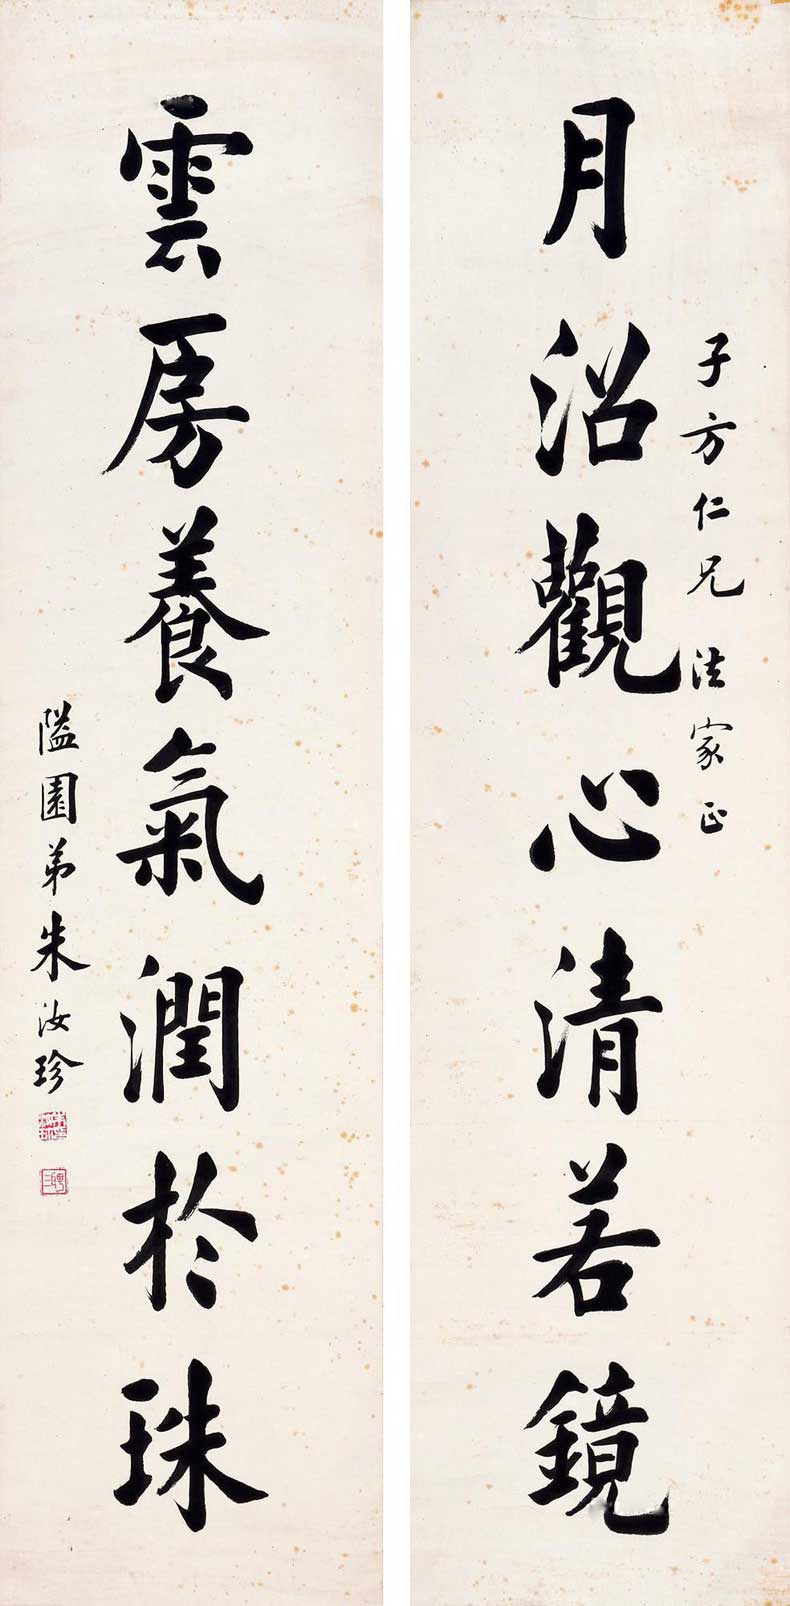 子方仁兄法家正
月沼觀心清若鏡
雲房養氣潤於珠
隘園弟朱汝珍